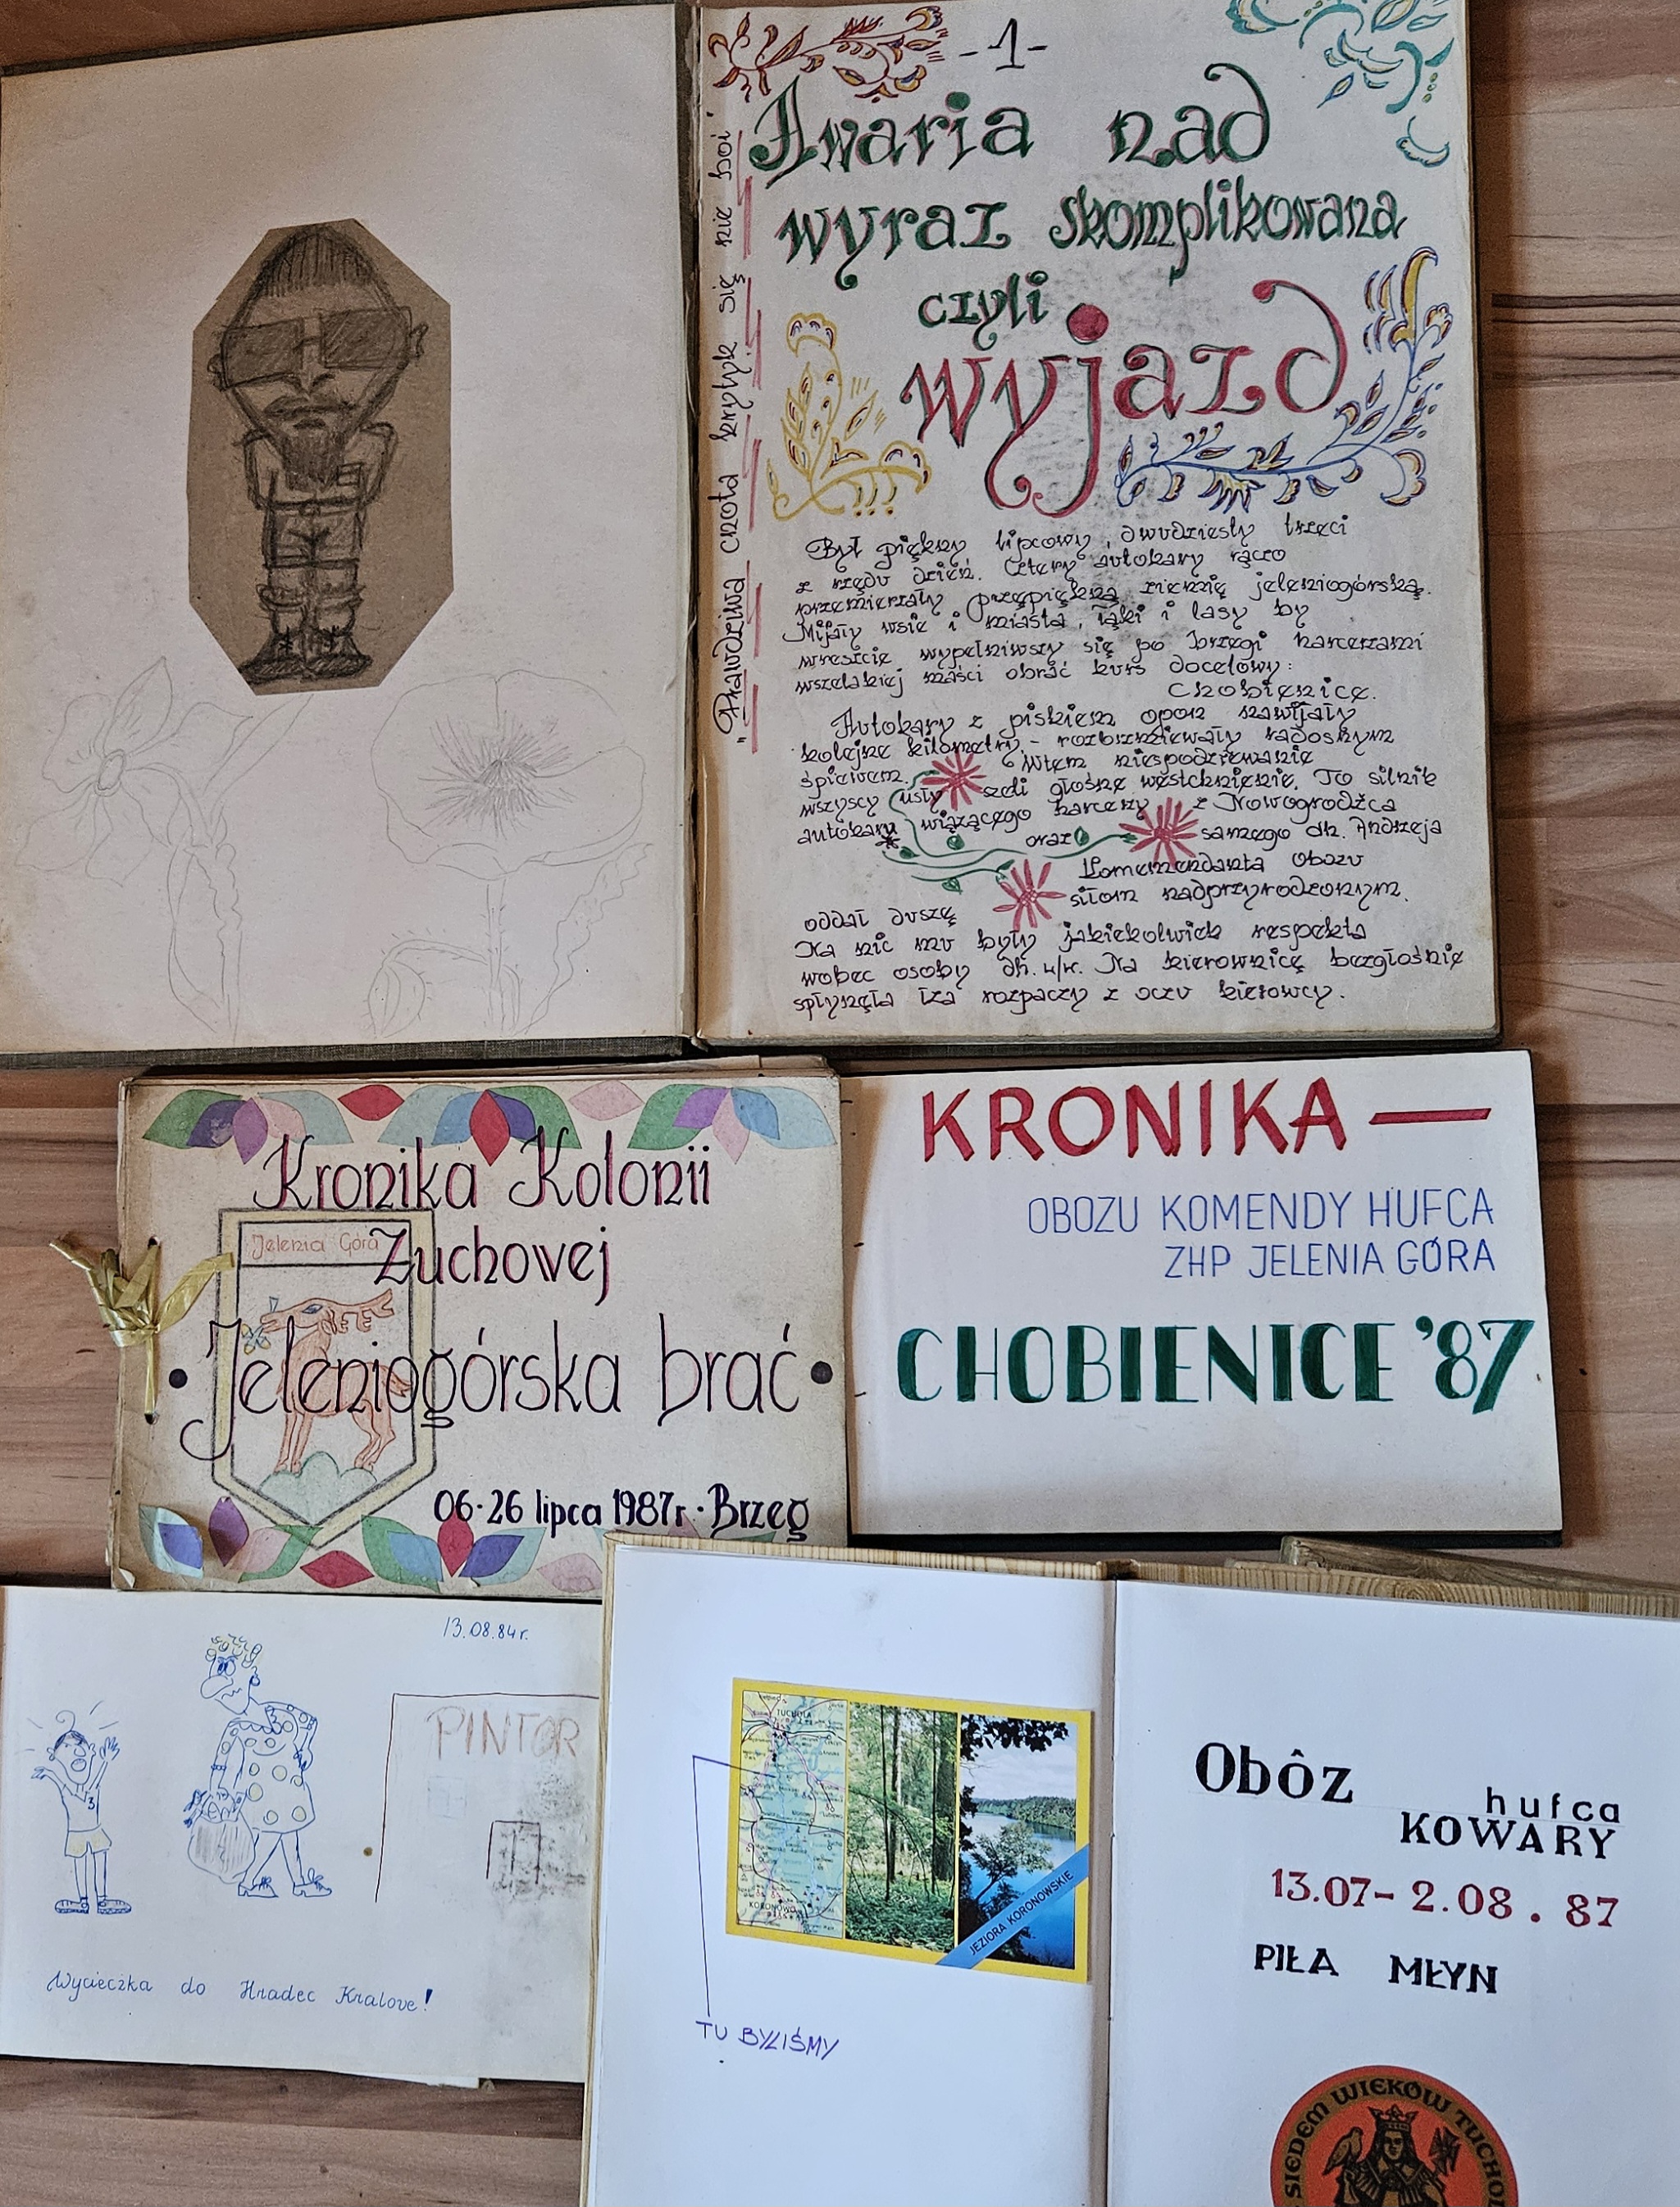 -1-
Awaria nad
wyraz skomplikowana
czyli
wyjazd
"Prawdziwa cnota krytyk się nie boi"
Był piękny lipcowy, dwudziesty trzeci
z rzędu dzień. Cztery autokary rączo
przemierzały przepiękną ziemię jeleniogórską.
Mijały wsie i miasta, łąki i lasy by
wreszcie wypełniwszy się po brzegi harcerzami
wszelakiej maści obrać kurs docelowy:
Chobienice.
Autokary z piskiem opon nawijały
kolejne kilometry, - rozbrzmiewały radosnym
śpiewem. Wtem niespodziewanie
wszyscy usłyszeli głośne westchnienie. To silnik
autokaru wiążącego harcerzy z Nowogrodźca
oraz samego dh. Andrzeja
Komendanta Obozu
oddał duszę siłom nadprzyrodzonym.
Na nic mu były jakiekolwiek respekta
wobec osoby dh. w/w. Na kierownicę bezgłośnie
spłynęła łza rozpaczy z oczu kierowcy.
Kronika Kolonii
Zuchowej
Jelenia Góra
Jeleniogórska brać
06-26 lipca 1987r. Brzeg
KRONIKA —
OBOZU KOMENDY HUFCA
ZHP JELENIA GÓRA
CHOBIENICE '87
13.08.84r.
3
PINTOR
Wycieczka do Hradec Kralove!
TUCHOLA
KORONOWO
JEZIORA KORONOWSKIE
TU BYLIŚMY
Obôz hufca
KOWARY
13.07- 2.08. 87
PIŁA MŁYN
SIEDEM WIEKÓW TUCHO